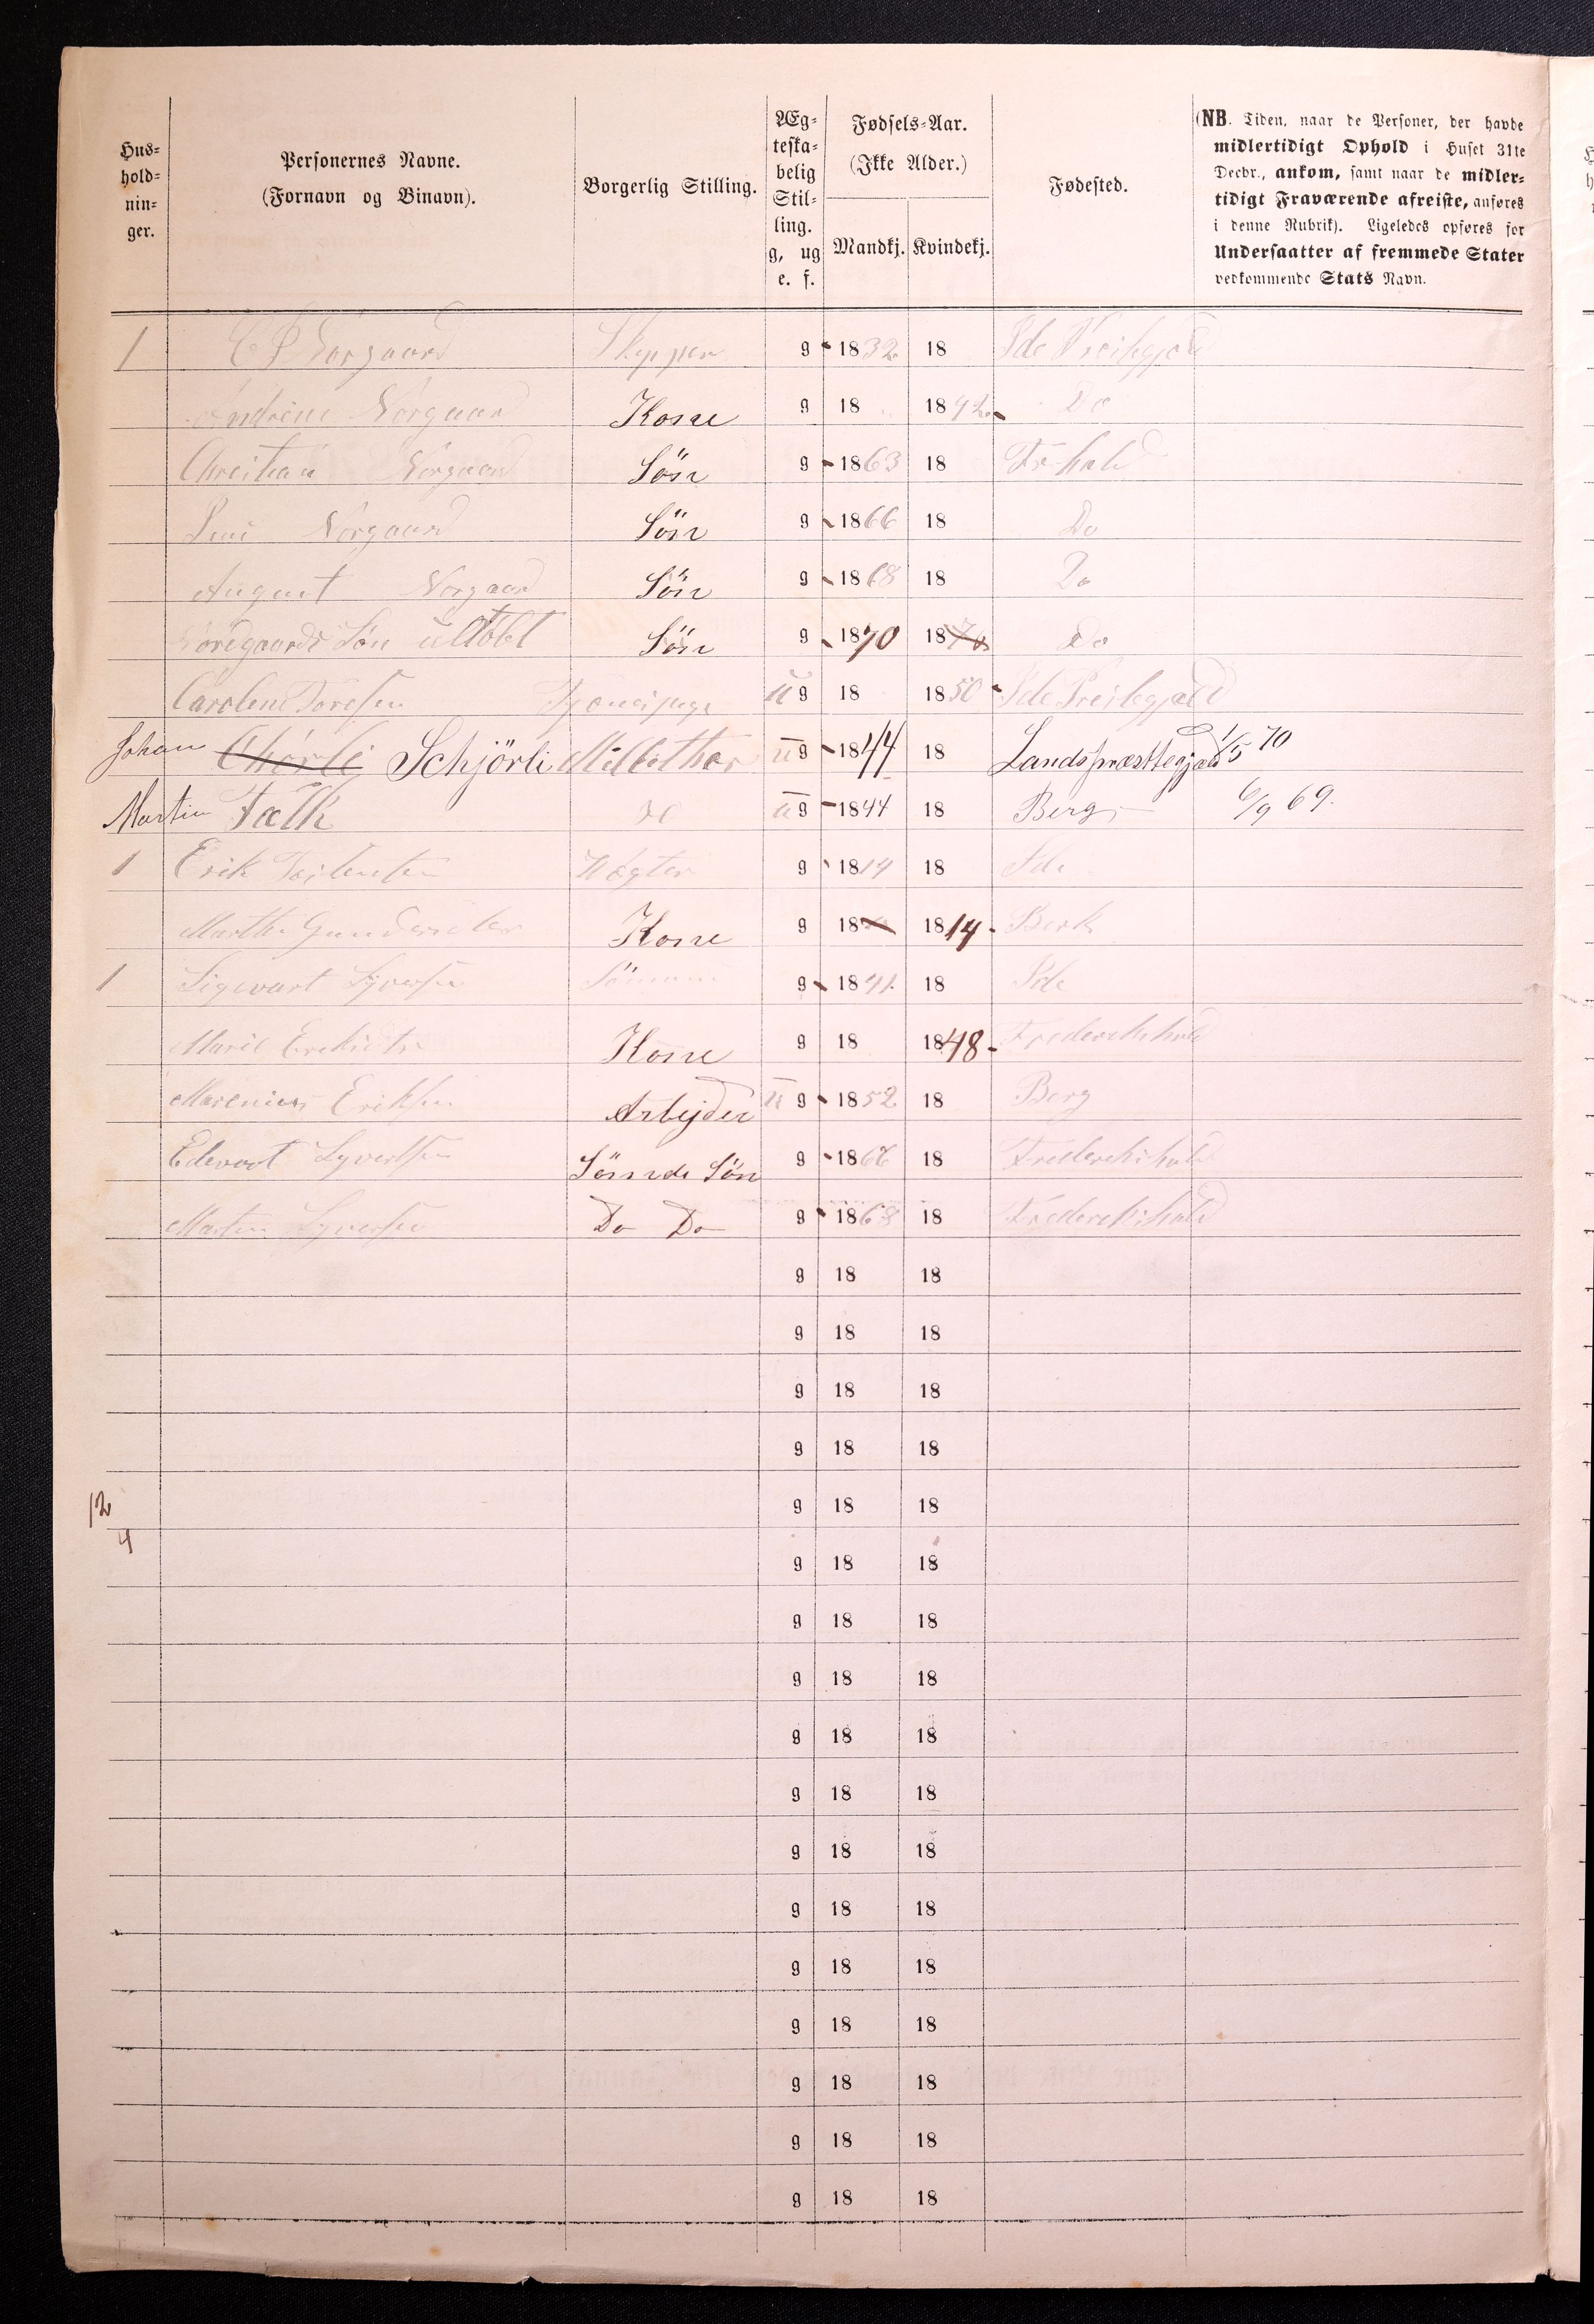 Hus-
hold-
nin-
ger.
Personernes Navne.
(Fornavn og Binavn).
Borgerlig Stilling.
Æg-
teska-
belig
Stil-
ling.
g, ug
e. f.
Fødsels-Aar.
(Ikke Alder.)
Mandkj. Kvindekj.
Fødested.
(NB. Tiden, naar de Personer, der havde
midlertidigt Ophold i Huset 31te
Decbr., ankom, samt naar de midler-
tidigt Fraværende afreiste, anføres
i denne Rubrik). Ligeledes opføres for
Undersaatter af fremmede Stater
vedkommende Stats Navn.
1 C P Norgaard Skipper g 1832 18 Ide
Andrine Norgaard Kone g 18 1842 Do
Christian Norgaard Sön g 1863 18 Fr.hald
Norgaard Sön g 1866 18 Do
August Norgaard Sön g 1868 18 Do
Sön udöbt Sön g 1870 18 Do
Caroline ug 18 1850 Ide
Johan Schjörli ug 1844 18 Landspræstegjæld 1/5 70
Martin Falk Do ug 1844 18 Berg 6/9 69.
1 Erik Vægter g 1814 18 Ide
Marthe Kone g 18 1814 Berk
1 Sigvart Syversen Sömann g 1841 18 Ide
Marie Kone g 18 1848 Frederikshald
Marenius Eriksen Arbejder ug 1852 18 Berg
Edevart Syvertsen g 186 18 Frederikshald
Martin Syversen Do Do g 1868 18 Frederikshald
g 18 18
g 18 18
g 18 18
g 18 18
12 g 18 18
4 g 18 18
g 18 18
g 18 18
g 18 18
g 18 18
g 18 18
g 18 18
g 18 18
g 18 18
g 18 18
g 18 18
g 18 18